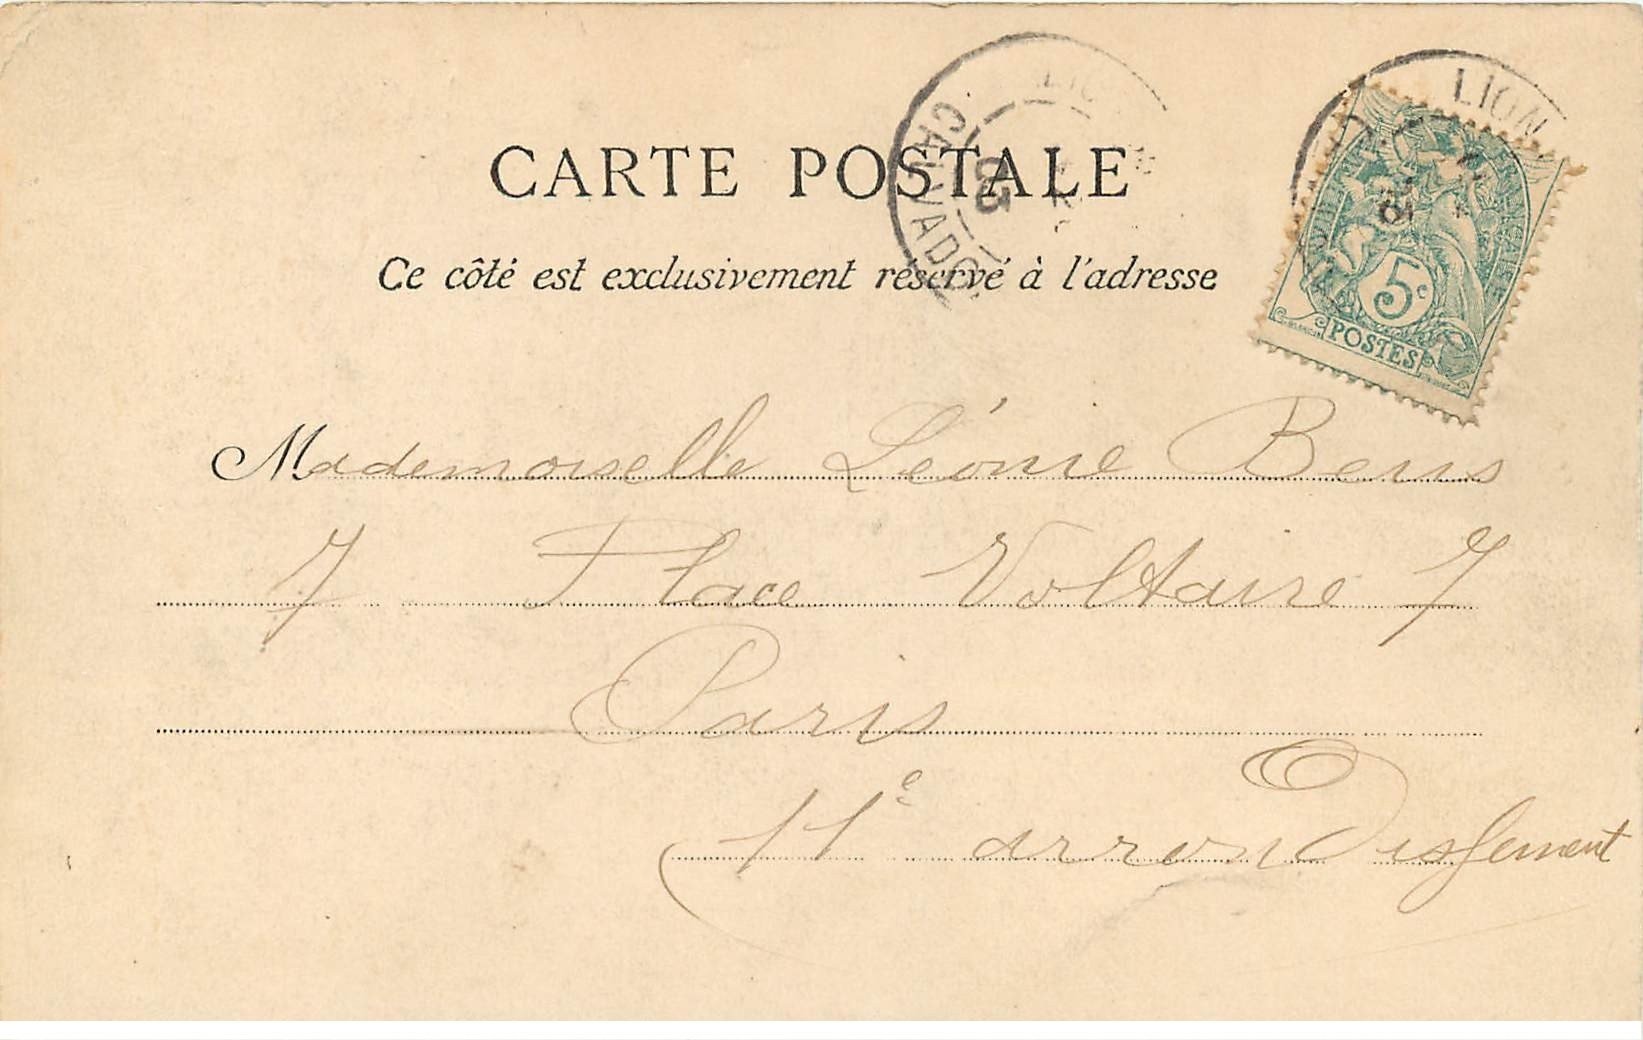 CARTE POSTALE
Ce côté est exclusivement réservé à l'adresse
LION
CALVADOS
03
LION
5c
POSTES
Mademoiselle Léonie Beus
7 Place Voltaire 7
Paris
11e arrondissement